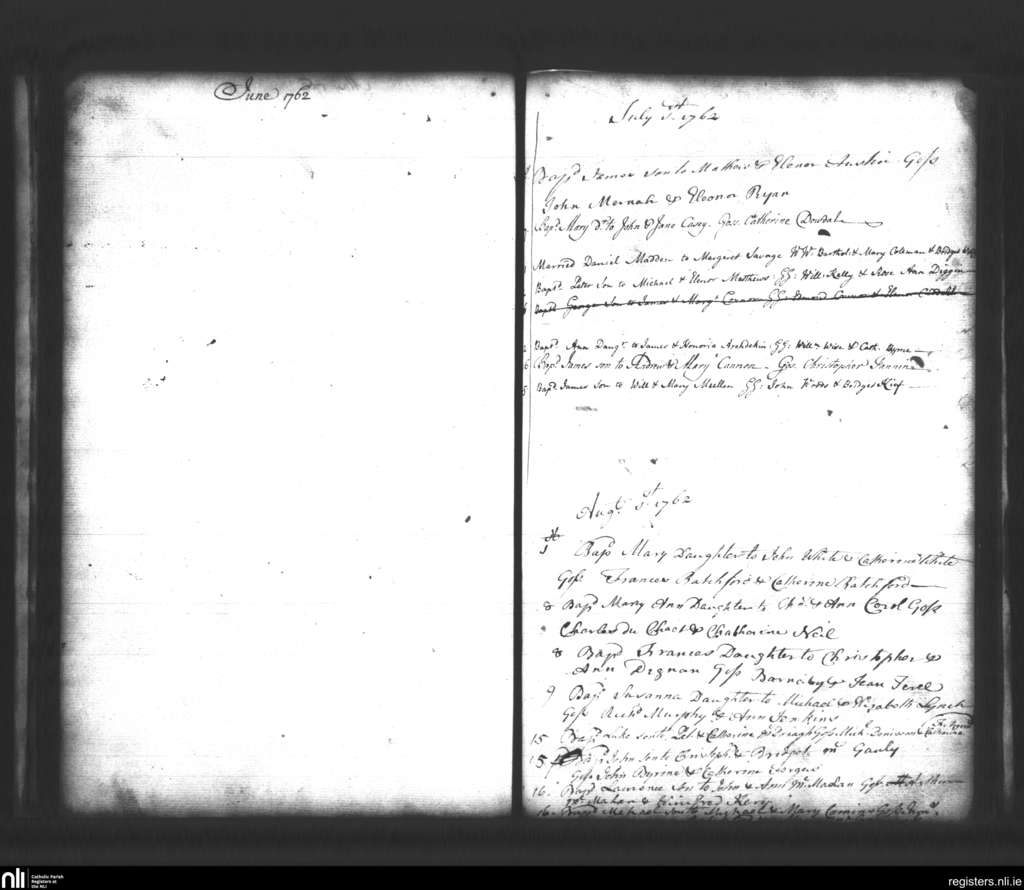 June 1762
July 1762
Bapd James Son to Mathew & Elenor Austin Goss
John Mernah & Eleonor Ryan
Bapd Mary Dr to John & Jane Casey. Goss. Catherine Dowdal
Married Daniel Madden to Margaret Savage WW: Barthol: & Mary Coleman & Bridget
Bapd Peter Son to Michael & Elenor Matthews: GG: Will: Kelly & Rose Ann Diggin
Bapd George Son to James & Mary Connor GG: Edmond Connor & Elenor
Bapd Ann Daugr to James & Honoria Archdekin: GG: Willm Wise & Cath: Byrne
Bapd James son to Andrew & Mary Cannon. Gos. Christopher Fannin
Bapd James Son to Will & Mary Mullen GG: John Woods & Bridget Kief
Augt 1762
1st Bapd Mary Daughter to John White & Catherine White
Goss Frances Ratchford & Catherine Ratchford
8 Bapd Mary Ann Daughter to & Ann Corol Goss
Charles du Chact & Chatharine Neil
8 Bapd Frances Daughter to Christopher &
Ann Dignan Goss Barnaby & Jean Ferel
9 Bapd Susanna Daughter to Michael & Elizabeth Lynch
Goss Richd Murphy & Ann Jenkins
15 Bapd Luke son to Pat. & Catherine Goss Mich. Donivan & Catherine
15 Bapd John son to Christoph. & Bridget Mc Gauly
Goss John Byrine & Catherine Georgen
16. Bapd Lawrence Son to John & Ann McMachan Goss
McMahan & Winifred Kery
16 Bapd Michael son to Michael & Mary Comings Goss
nli
Catholic Parish
Registers at
the NLI
registers.nli.ie